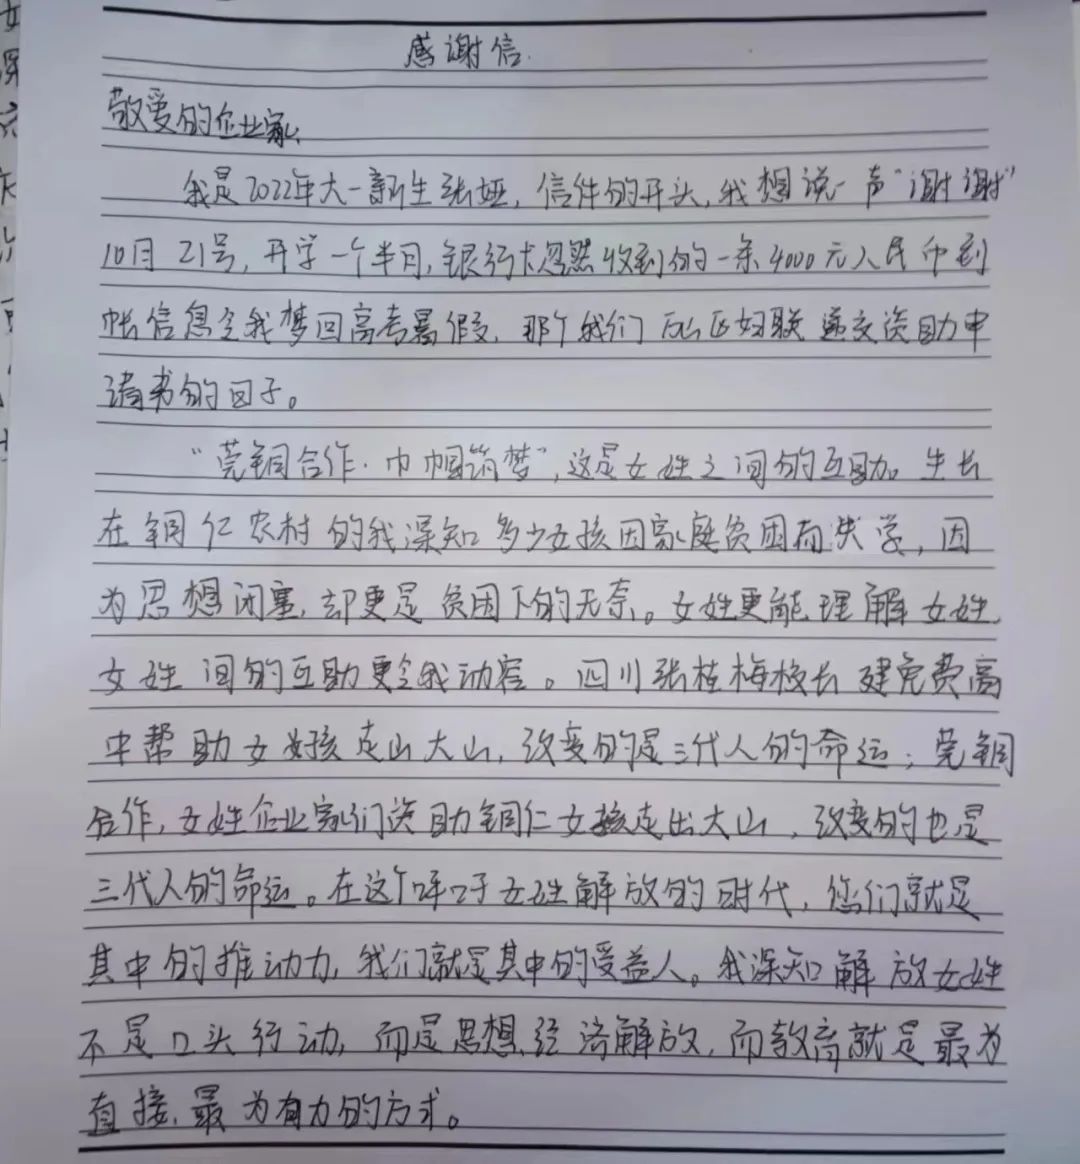 感谢信
敬爱的企业家、
我是2022年大一新生张娅,信件的开头,我想说一声“谢谢”
10月21号,开学一个半月,银行卡忽然收到的一条4000元人民币到
帐信息令我梦回高考暑假,那个我们在区妇联递交资助申
请书的日子。
“莞铜合作·巾帼筑梦”,这是女姓之间的互助。生长
在铜仁农村的我深知多少女孩因家庭贫困而失学,因
为思想闭塞,却更是贫困下的无奈。女姓更能理解女姓,
女姓间的互助更令我动容。四川张桂梅校长建免费高
中帮助女孩走出大山,改变的是三代人的命运;莞铜
合作,女姓企业家们资助铜仁女孩走出大山,改变的也是
三代人的命运。在这个呼吁女姓解放的时代,您们就是
其中的推动力,我们就是其中的受益人。我深知解放女姓
不是口头行动,而是思想、经济解放,而教育就是最为
直接、最为有力的方式。
女
深